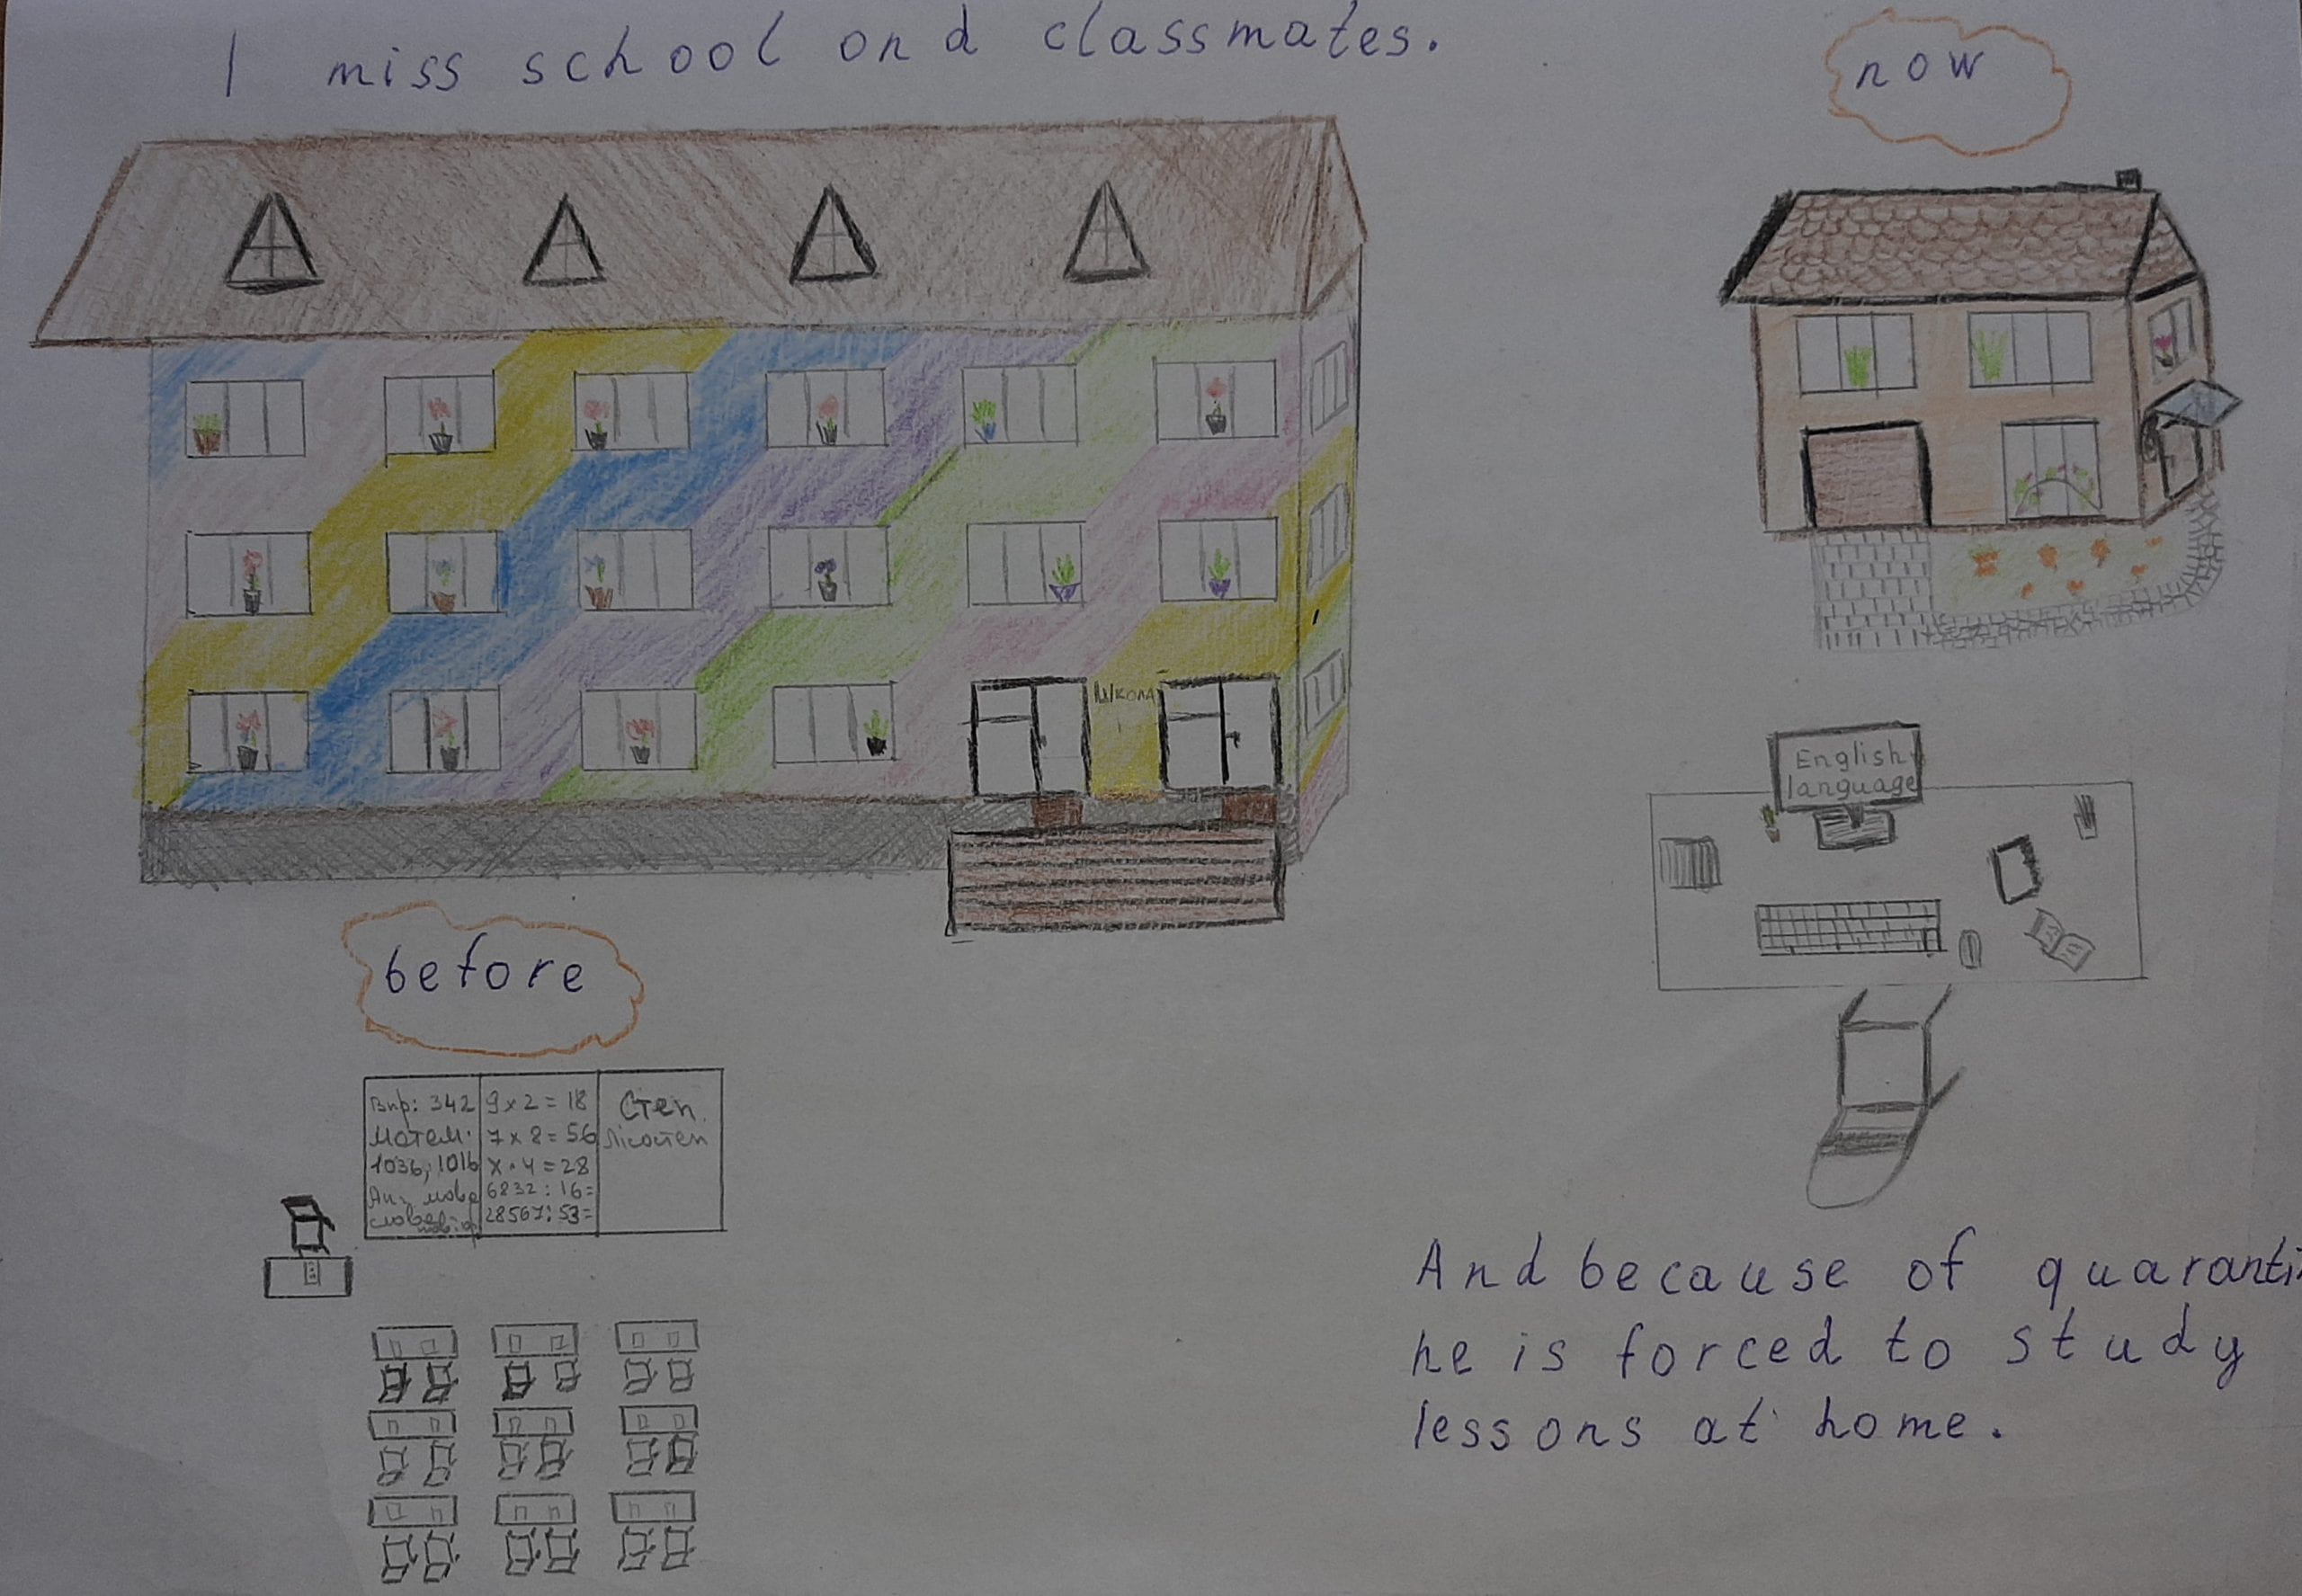 I miss school and classmates.
now
Школа
English
language
before
Впр: 342
матем.
1036, 1016
Анг. мова
слова
9 x 2 = 18
7 x 8 = 56
x · 4 = 28
6832 : 16 =
28567 : 53 =
Степ.
Лісостеп
And because of quaranti
he is forced to study
lessons at home.